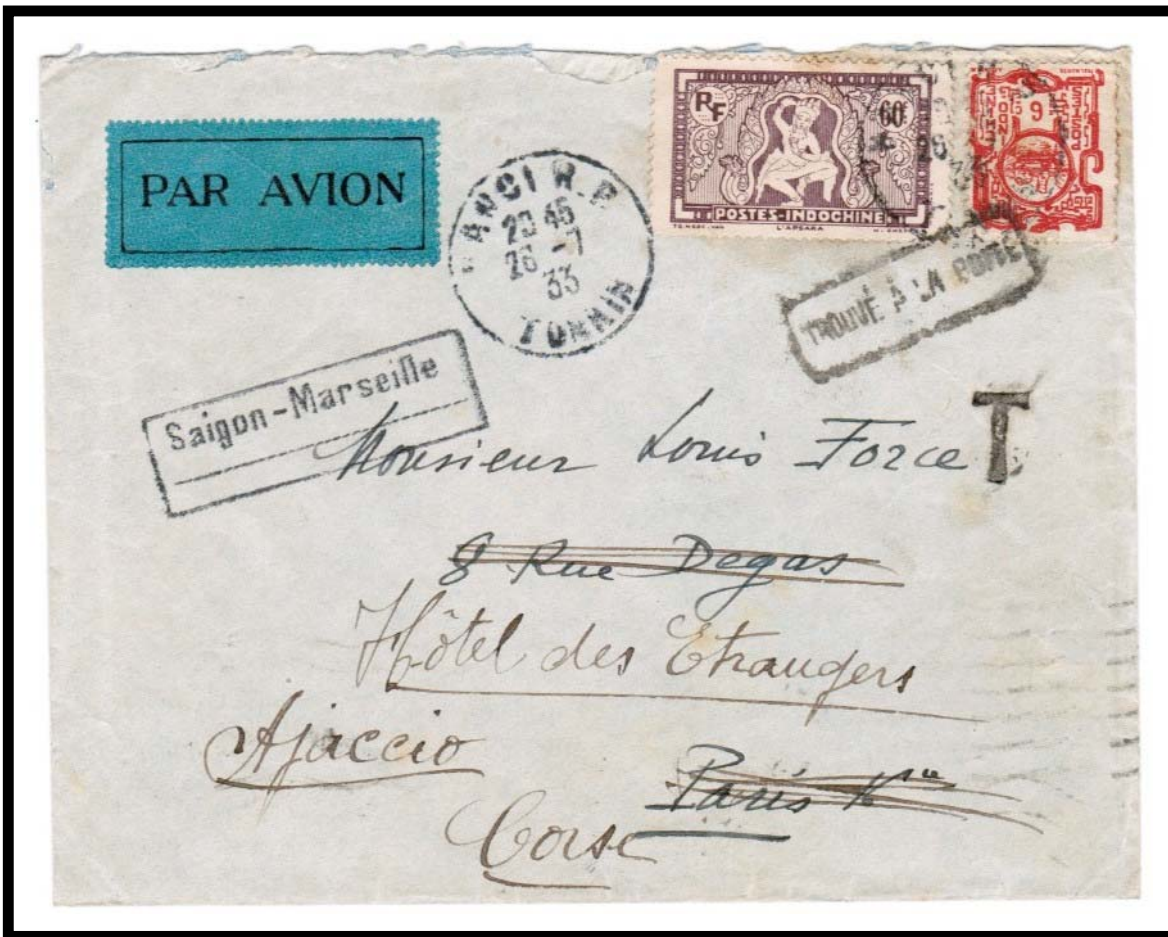 PAR AVION
HANOI R.P
20 45
26 -7
33
TONKIN
RF
60
POSTES-INDOCHINE
L'APSARA
6
TROUVÉ À LA BOITE
Saigon-Marseille
T
Monsieur Louis Force
8 Rue Degas
Hôtel des Etrangers
Ajaccio
Paris
Corse